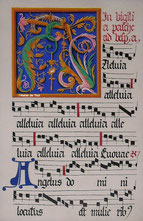 In vigili
a pasche
ad vesp, a,
Alleluia
alleluia
alleluia alleluia alle
luia alleluia Euouae
Angelus do mi ni
locutus est mulie ribꝰ